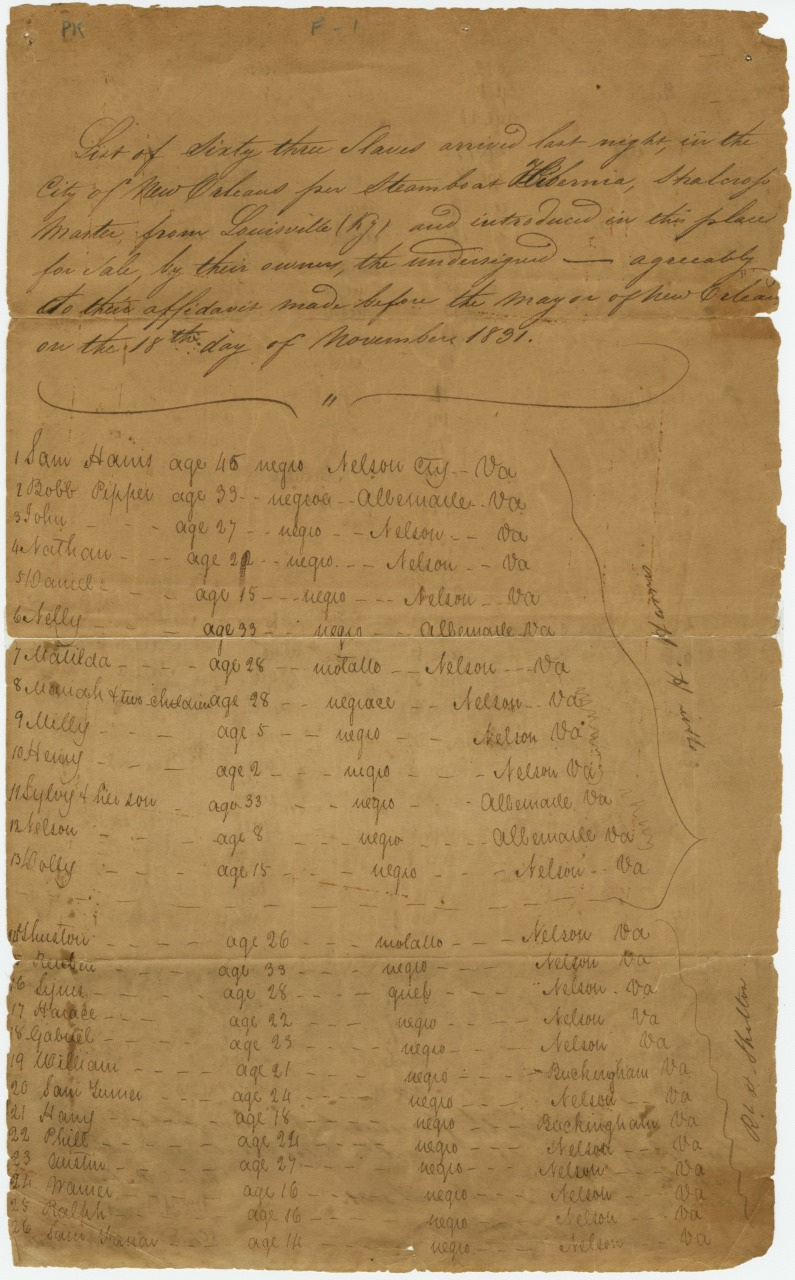 PK F-1
List of Sixty three Slaves arrived last night, in the
City of New Orleans per Steamboat Hibernia, Shalcross
Master, from Louisville (Ky) and introduced in this place
for Sale, by their owners, the undersigned — agreeably
to their affidavit made before the Mayor of New Orleans
on the 18th day of November 1831.
"
1 Sam Harris age 45 negro Nelson Cty -- Va
2 Bobb Pipper age 33 -- negroe -- Albemarle -- Va
3 John - - - age 27 -- negro -- Nelson -- Va
4 Nathan - -- age 22 -- negro -- Nelson -- Va
5 Daniel - - - age 15 --- negro -- Nelson -- Va
6 Nelly - - - age 33 -- negro - Albemarle Va
7 Matilda - - - age 28 -- motatto -- Nelson --- Va
8 Mariah & two children age 28 -- negrace -- Nelson -- Va
9 Milly - - - age 5 -- negro - - Nelson Va
10 Henry - - - age 2 - - negro - - Nelson Va
11 Sylvy & her son - age 33 - negro - - Albemarle Va
12 Nelson - - - age 8 - - negro - - - Albemarle Va
13 Dolly - - - age 15 - - negro - - - Nelson -- Va
Wm H. Harris
14 - - - age 26 - - - motatto - - - Nelson Va
Reuben - - - age 33 - - - negro - - - Nelson Va
16 - - - age 28 - - - - Nelson - Va
17 Horace - - - age 22 - - negro - - Nelson Va
18 Gabriel - - - age 23 - - negro - - Nelson Va
19 William - - - age 21 - - negro - - Buckingham Va
20 Sam Turner - - age 24 - - negro - - Nelson - - Va
21 Harry - - - age 18 - - negro - - Buckingham Va
22 - - - age 24 - - negro - - Nelson - - Va
23 Austin - - - age 27 - - negro - - Nelson - - Va
24 Warner - - - age 16 - - negro - - Nelson - - Va
25 Ralph - - - age 16 - - negro - - Nelson - - Va
26 Sam - - - age 14 - - negro - - Nelson - - Va
Shelton